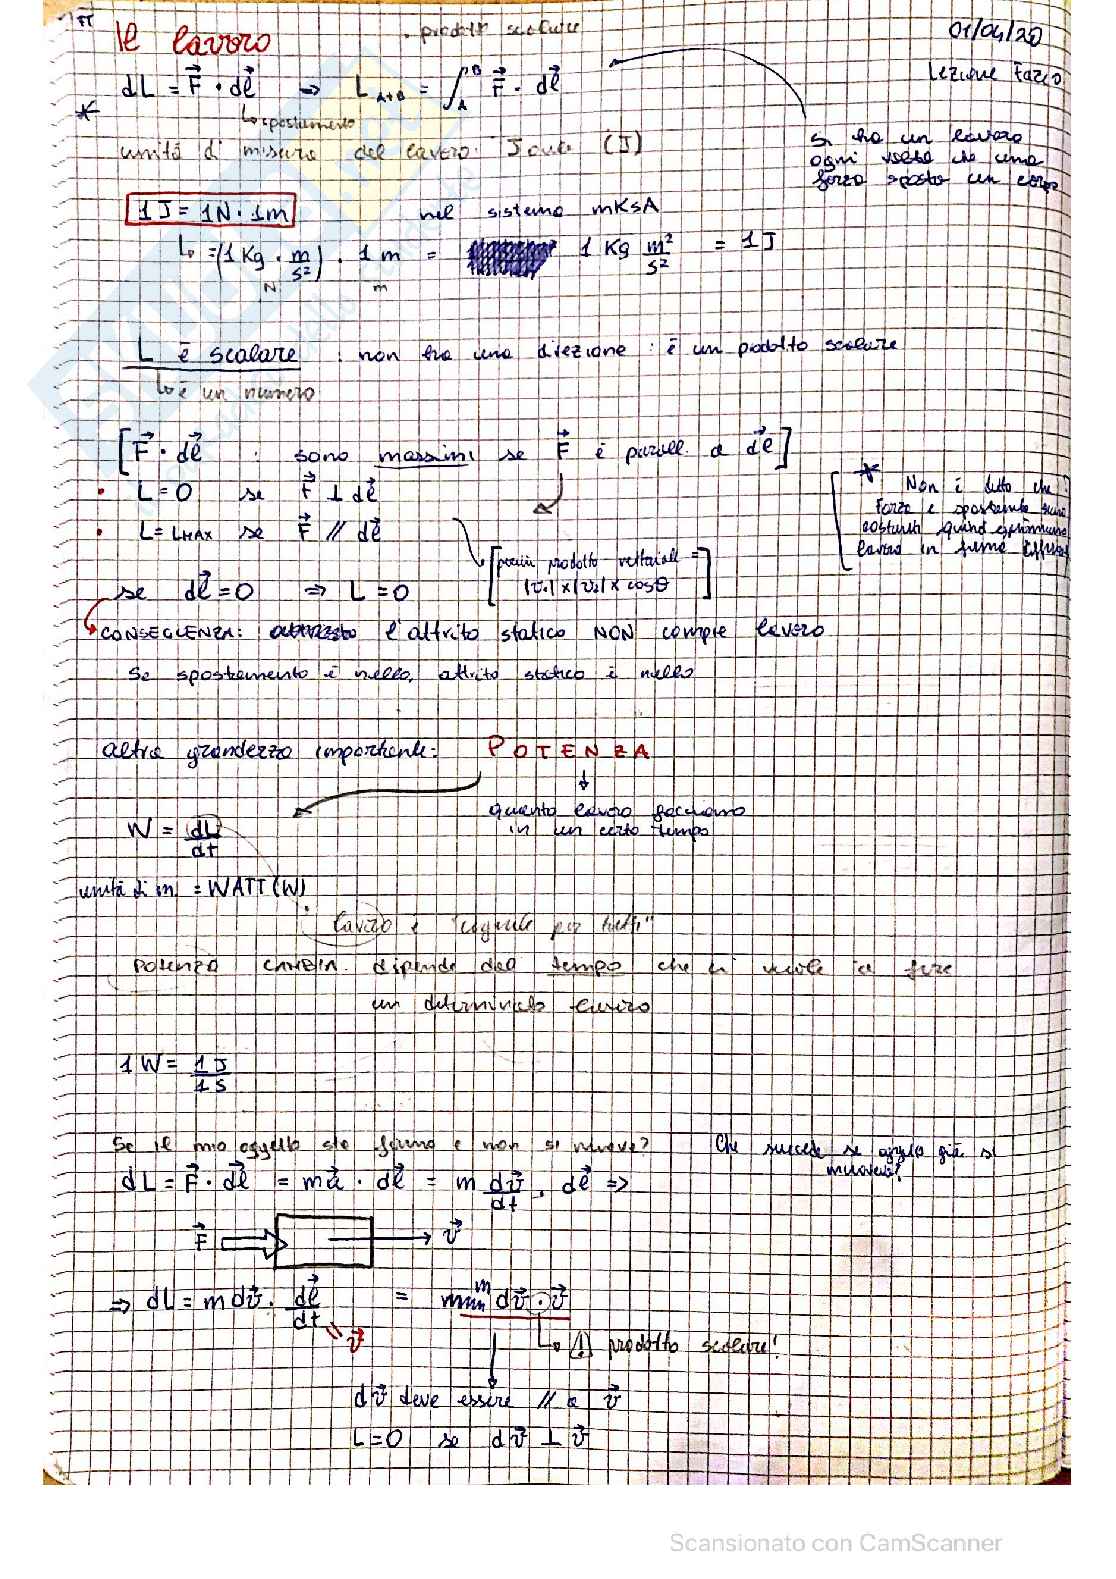 Il lavoro
• prodotto scalare
01/04/20
Lezione Fazio
dL = F⃗ · dl⃗ → L A→B = ∫_A^B F⃗ · dl⃗
↳ spostamento
unità di misura del lavoro: Joule (J)
Si ha un lavoro
ogni volta che una
forza sposta un corpo
1 J = 1N · 1m
nel sistema MKSA
↳ = (1 Kg · m/s²) · 1 m = 1 Kg m²/s² = 1 J
N m
L è scalare : non ha una direzione : è un prodotto scalare
↳ è un numero
[F⃗ · dl⃗ : sono massimi se F⃗ è parall. a dl⃗]
• L = 0 se F⃗ ⊥ dl⃗
• L = LMAX se F⃗ // dl⃗
* Non è detto che
forza e spostamento siano
costanti quindi esprimiamo
lavoro in forma
prodotto vettoriale =
|v₁| x |v₂| x cosθ
se dl⃗ = 0 ⇒ L = 0
CONSEGUENZA: l'attrito statico NON compie lavoro
Se spostamento è nullo, attrito statico è nullo
altra grandezza importante: POTENZA
quanto lavoro facciamo
in un certo tempo
W = dL/dt
unità di m. = WATT (W)
lavoro è "uguale per tutti"
potenza CAMBIA. dipende dal tempo che ci vuole a fare
un determinato lavoro
1 W = 1J/1S
Se il mio oggetto sta fermo e non si muove?
Che succede se oggetto già si
muoveva?
dL = F⃗ · dl⃗ = ma⃗ · dl⃗ = m dv⃗/dt · dl⃗ ⇒
F⃗ v⃗
⇒ dL = m dv⃗ · dl⃗/dt = m dv⃗ · v⃗
v⃗
↳ ⚠ prodotto scalare!
dv⃗ deve essere // a v⃗
L = 0 se dv⃗ ⊥ v⃗
Scansionato con CamScanner